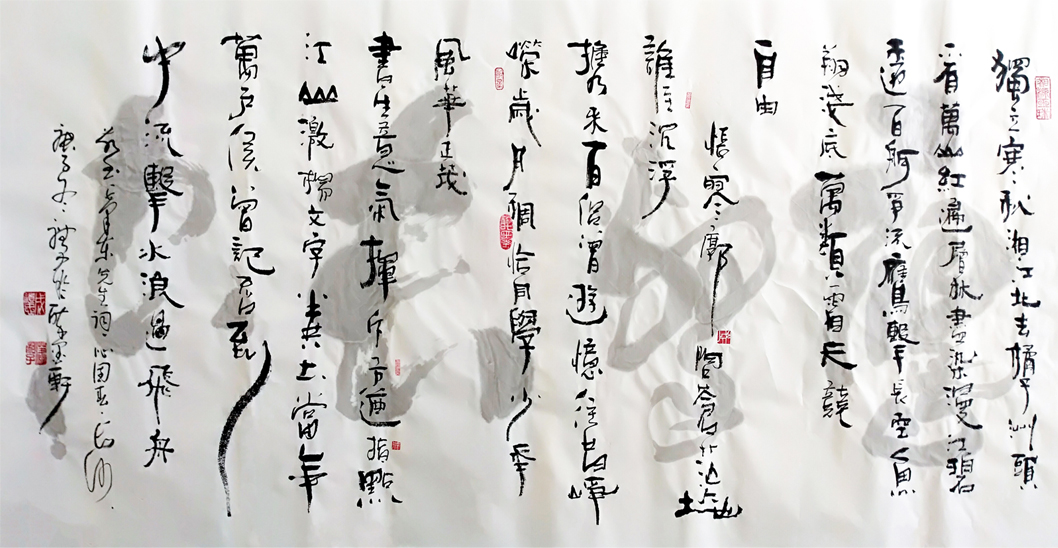 獨立寒秋湘江北去橘子洲頭
看萬山紅遍層林盡染漫江碧
透百舸爭流鷹擊長空魚
翔淺底萬類霜天競
自由
悵寥廓問蒼茫大地
誰主沉浮
攜來百侶曾遊憶往昔崢
嶸歲月稠恰同學少年
風華正茂
書生意氣揮斥方遒指點
江山激揚文字糞土當年
萬户侯曾記否到
中流擊水浪遏飛舟
毛澤東先生詞沁園春長沙
庚子冬